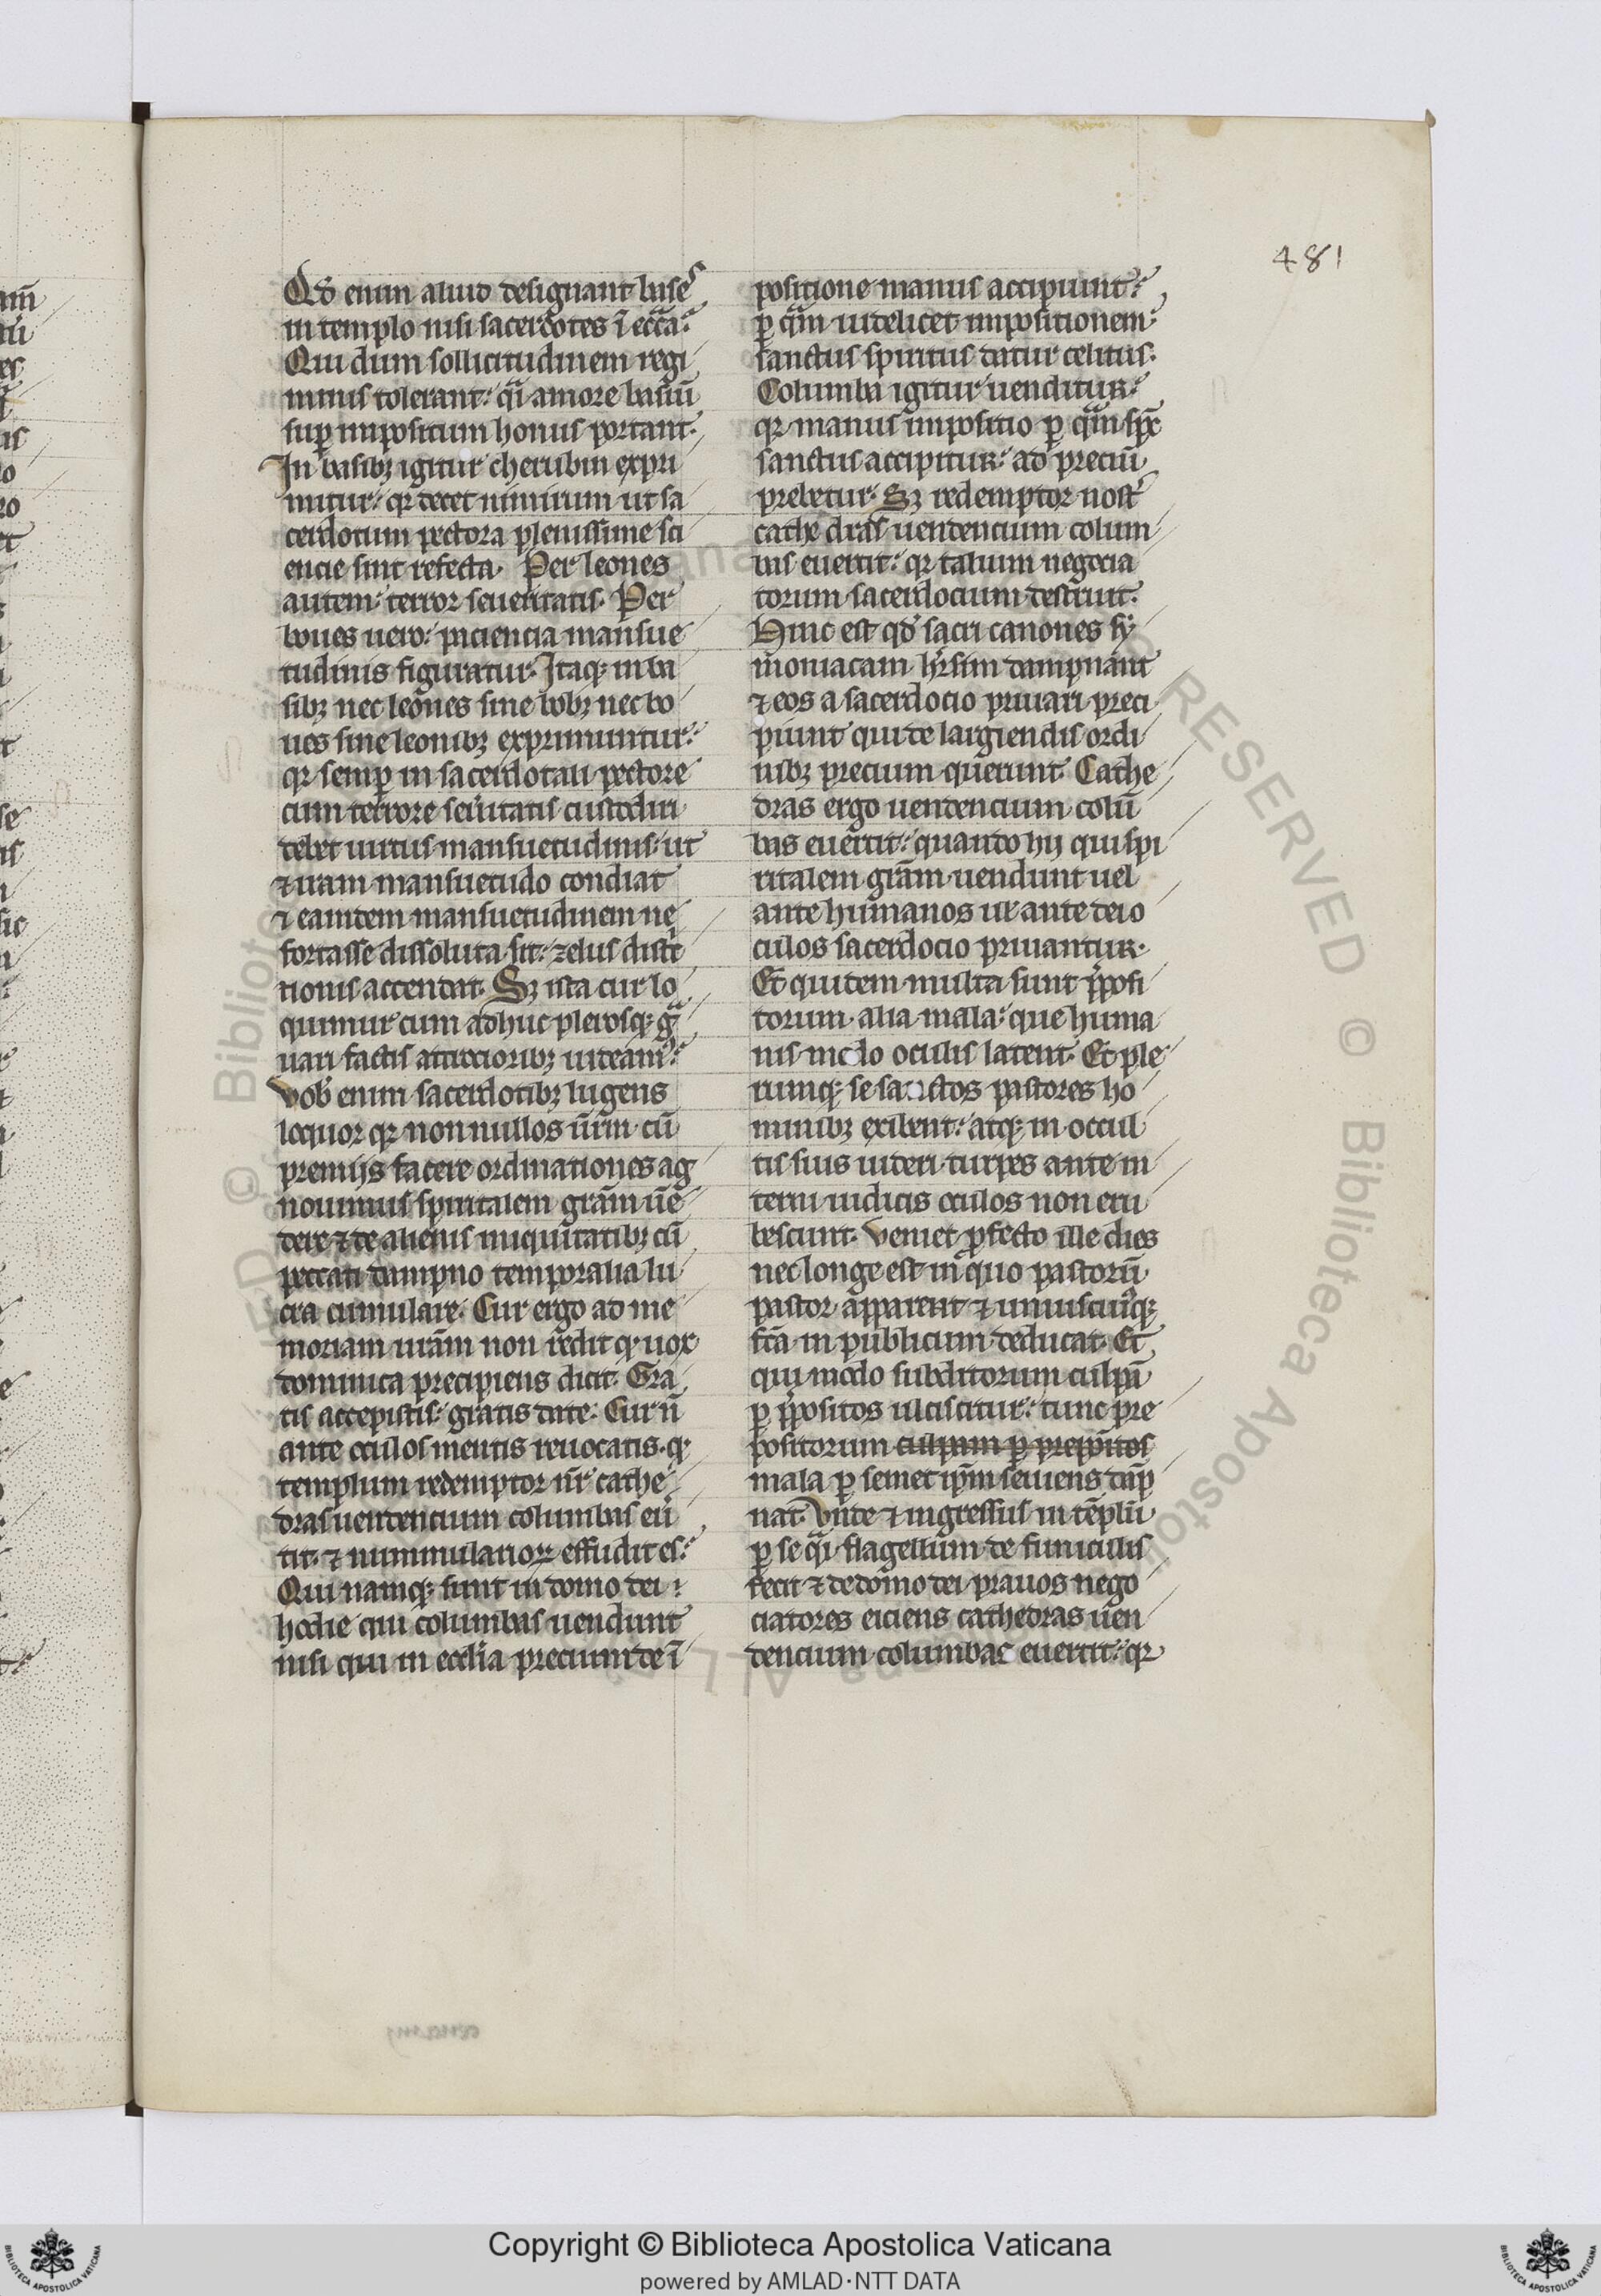 481
Qd̄ enim aliud designant base͛s
in templo nisi sacerdotes ī ecc̄a.
Qui dum sollicitudinem regi
minis tolerant: qͣi amore basiū
suꝑ impositum honus portant.
In basibꝫ igitur cherubin expri
mitur: qꝛ decet nimirum ut sa
cerdotum pectora plenissime sci
encie sint refecta. Per leones
autem: terror seueritatis. Per
boues uero: paciencia mansue
tudinis figuratur. Itaqꝫ in ba
sibꝫ nec leones sine bobꝫ nec bo
ues sine leonibꝫ exprimuntur:
qꝛ semꝑ in sacerdotali pectore
cum terrore seu̾itatis custodiri
debet uirtus mansuetudinis: ut
⁊ iram mansuetudo condiat
⁊ eamdem mansuetudinem ne
fortasse dissoluta sit: zelus distͥc
tionis accendat. Sꝫ ista cur lo
quimur cum adhuc plerosqꝫ gͣ
uari factis atrocioribꝫ uideam᷒:
Vob̄ enim sacerdotibꝫ lugens
loquor qꝛ nonnullos ur̄m cū
premijs facere ordinationes ag
nouimus spiritalem gram̄ uē
dere ⁊ de alienis iniquitatibꝫ cū
peccati dampno temporalia lu
cra cumulare. Cur ergo ad me
moriam uram̄ non redit qꝫ uox
dominica precipiens dicit. Gra
tis accepistis: gratis date. Cur n̄
ante oculos mentis reuocatis. qꝫ
templum redemptor nr̄ cathe
dras uendencium columbas eu̾
tit. ⁊ nummularioꝝ effudit es:
Qui namqꝫ sunt in domo dei
hodie qui columbas uendunt
nisi qui in ecc̄lia precium de ī
positione manus accipiunt:
ꝑ qͣm uidelicet impositionem
sanctus spiritus datur celitus.
Columba igitur uenditur:
qꝛ manus impositio ꝑ qͣm sp̄c
sanctus accipitur: ad preciū
prebetur. Sꝫ redemptor nost̾
cathedras uendencium colum
bas euertit: qꝛ talium negocia
torum sacerdocium destruit.
Hinc est qd̄ sacri canones sẏ
moniacam hr̄sim dampnant
⁊ eos a sacerdocio priuari preci
piunt qui de largiendis ordi
nibꝫ precium querunt. Cathe
dras ergo uendencium colū
bas euertit: quando hij qui spi
ritalem gram̄ uendunt uel
ante humanos uel ante dei o
culos sacerdocio priuantur.
Et quidem multa sunt p̄posi
torum alia mala: que huma
nis modo oculis latent. Et ple
rumqꝫ se sanctos pastores ho
minibꝫ exibent: atqꝫ in occul
tis suis uideri turpes ante in
terni iudicis oculos non eru
bescunt. Veniet ꝓfecto ille dies
nec longe est in quo pastorū
pastor appareat ⁊ uniuscuiͥqꝫ
fc̄a in publicum deducat. Et
qui modo subditorum culpā
ꝑ p̄positos ulciscitur: tunc pre
positorum culpam ꝑ prepositos
mala ꝑ semet ip̄m seuiens dāp
nat. Vnde ⁊ ingressus in tēplū
ꝑ se qͣi flagellum de funiculis
fecit ⁊ de domo dei prauos nego
ciatores eiciens cathedras uen
dencium columbas euertit: qꝛ
Copyright © Biblioteca Apostolica Vaticana
powered by AMLAD·NTT DATA